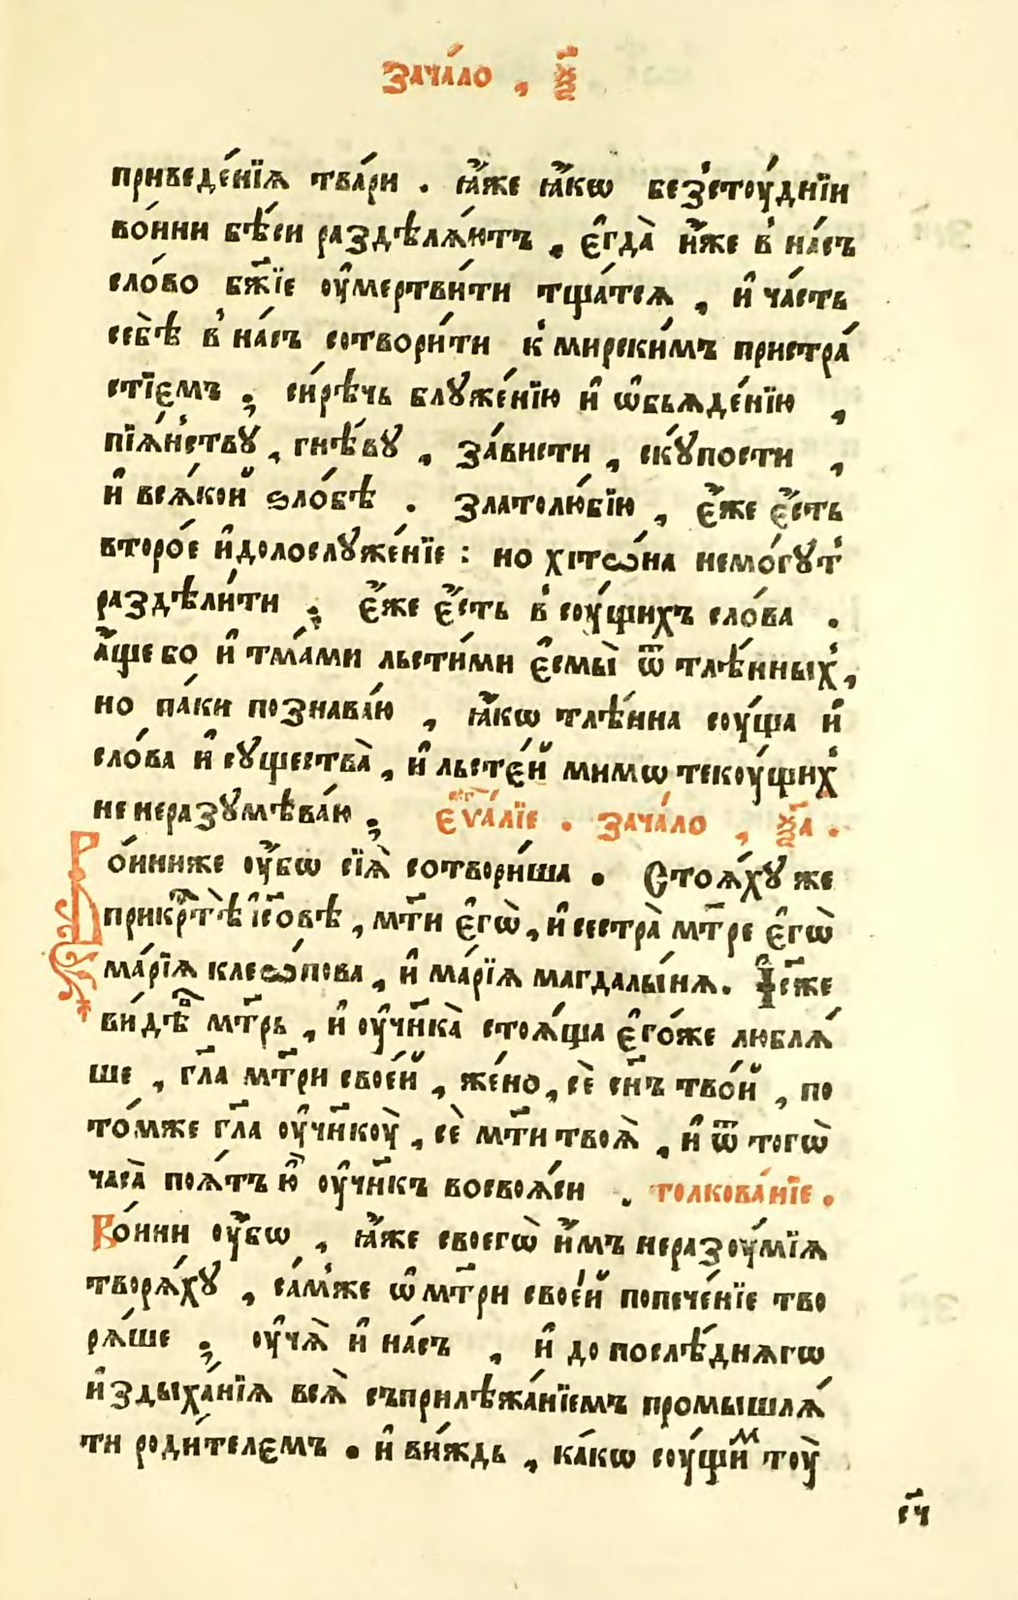 Зача́ло , ѯ҃
приведе́нїѧ тва́ри . ꙗ҆́же ꙗ҆́кѡ без̾стоу́днїи
во́ини бѣ́си раздѣлѧ́ютъ , є҆гда̀ и҆́же в̾ на́съ
сло́во бж҃їе оу҆мертви́ти тщатсѧ , и҆ ча́сть
себѣ̀ в̾ на́съ сотвори́ти к̾ мирски́мъ пристра́
стїємъ ; си́рѣчь блꙋже́нїю и҆ ѡ҆бьѧде́нїю ,
пїѧ́н̾ствꙋ , гнѣ́вꙋ , за́висти , скꙋ́пости ,
и҆ всѧ́кой ѕло́бѣ . златолю́бїю , є҆́же є҆́сть
второ́е и҆долослꙋже́нїе : но хїтѡ́на немо́гꙋт̾
раздѣли́ти ; є҆́же є҆́сть в̾ соу́щихъ сло́ва .
а҆́ще бо и҆ тма́ми льсти́ми є҆смы̀ ѿ тлѣ́нных̾,
но па́ки познава́ю , ꙗ҆́кѡ тлѣ́нна соу́ща и҆
сло́ва и҆ сꙋщества̀ , и҆ льсте́й мимѡ текоу́щих̾
не неразꙋмѣва́ю ; є҆ѵⷢ҇а́лїе . зача́ло , ѯ҃а .
Во́иниже оу҆́бѡ сїѧ̀ сотвори́ша . Стоѧ́хꙋ же
прикрⷭ҇тѣ̀ і҆сⷪ҇вѣ , мт҃и є҆гѡ̀ , и҆ сестра̀ мт҃ре є҆гѡ̀
ма́рїѧ клеѡ́пова , и҆ ма́рїѧ магдалы́нѧ . І҆с҃же
ви́дѣⷡ҇ мт҃рь , и҆ оу҆чн҃ка̀ стоѧ́ща є҆го́же люблѧ́
ше , гл҃а мт҃ри свое́й , же́но , сѐ сн҃ъ тво́й , по
то́мже гл҃а оу҆чн҃коу̀ , сѐ мт҃и твоѧ̀ , и҆ ѿ тогѡ̀
часа̀ поѧ́тъ ю҆̀ оу҆чн҃къ восвоѧ́си . толкова́нїе .
Во́ини оу҆́бѡ , ꙗ҆́же своегѡ̀ и҆́мъ неразоу́мїѧ
творѧ́хꙋ , са́м̾же ѡ҆ мт҃ри свое́й попече́нїе тво
рѧ́ше ; оу҆чѧ̀ и҆ на́съ , и҆ до послѣ́днѧгѡ
и҆здыха́нїѧ всѧ̀ съприлѣжа́нїемъ промышлѧ́
ти роди́телємъ . и҆ ви́ждь , ка́кѡ соу́щиⷨ тоу̀
сч҃